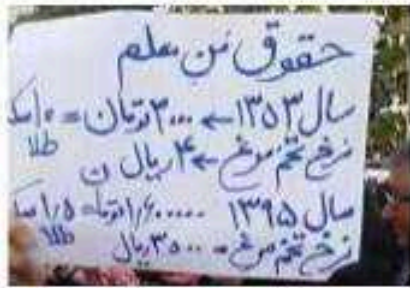 حقوق من معلم
سال ۱۳۵۳ ← ۳۰۰۰ تومان = ۱۰ سکه
طلا
نرخ تخم مرغ ← ۴ ریال
سال ۱۳۹۵ ۱/۶۰۰۰۰۰ تومان = ۱/۵ سکه
طلا
نرخ تخم مرغ = ۳۵۰۰ ریال